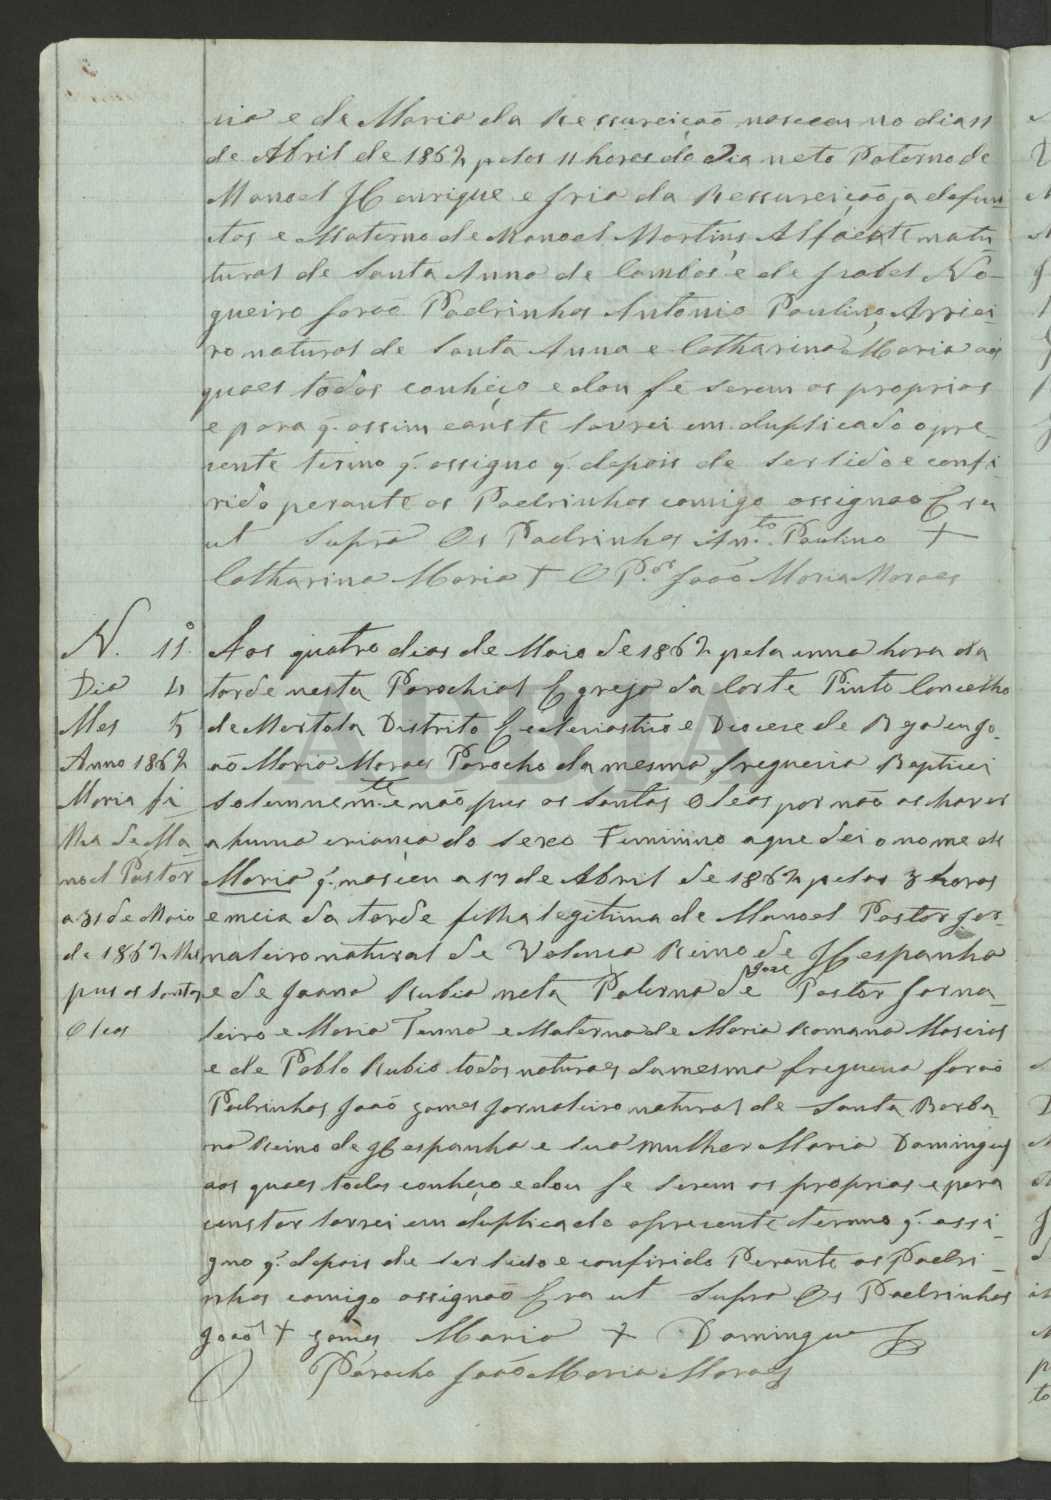 nia e de Maria da Ressureição nasceu no dia 11
de Abril de 1862 pelas 11 horas do dia neto Paterno de
Manoel Henrique e Iria da Ressureição ja defun-
tos e Materno de Manoel Martins Alfaeate natu-
turas de Santa Anna de Cambas e de Izabel No-
gueira forão Padrinhos Antonio Paulino Arriei-
ro natural de Santa Anna e Catharina Maria aos
quaes todos conheço e dou fé serem os proprios
e para q. assim conste lavrei em duplicado o pre-
zente termo q. assigno q. depois de ser lido e confi-
rido perante os Padrinhos comigo assignão Era
ut Supra Os Padrinhos An.to Paulino +
Catharina Maria + O P.or João Maria Moraes
N. 11º
Dia 4
Mes 5
Anno 1862
Maria fi
lha de Ma-
noel Pastor
a 31 de Maio
de 1862 lhe
pus os Santos
Oleos
Aos quatro dias de Maio de 1862 pela uma hora da
tarde nesta Parochial Egreja da Corte Pinto Concelho
de Mertola Distrito Ecclesiastico e Diocese de Beja eu Jo-
ão Maria Moraes Parocho da mesma freguezia Baptizei
solemnem.te e não pus os Santos Oleos por não os haver
a huma criança do sexo Feminino a que dei o nome de
Maria q. nasceu a 17 de Abril de 1862 pelas 3 horas
e meia da tarde filha legitima de Manoel Pastor jor-
naleiro natural de Valença Reino de Hespanha
e de Joana Rubia neta Paterna de Joze Pastor Jorna-
leiro e Maria e Materna de Maria Romana
e de Pablo Rubio todos naturaes da mesma freguezia forão
Padrinhos João Gomes Jornaleiro natural de Santa Barba-
ra Reino de Hespanha e sua mulher Maria Domingues
aos quaes todos conheço e dou fé serem os proprios e para
constar lavrei em duplicado o prezente termo q. assi-
gno q. depois de ser lido e confirido Perante os Padri-
nhos comigo assignão Era ut Supra Os Padrinhos
João + Gomes Maria + Domingues
O Parocho João Maria Moraes
ADBJA